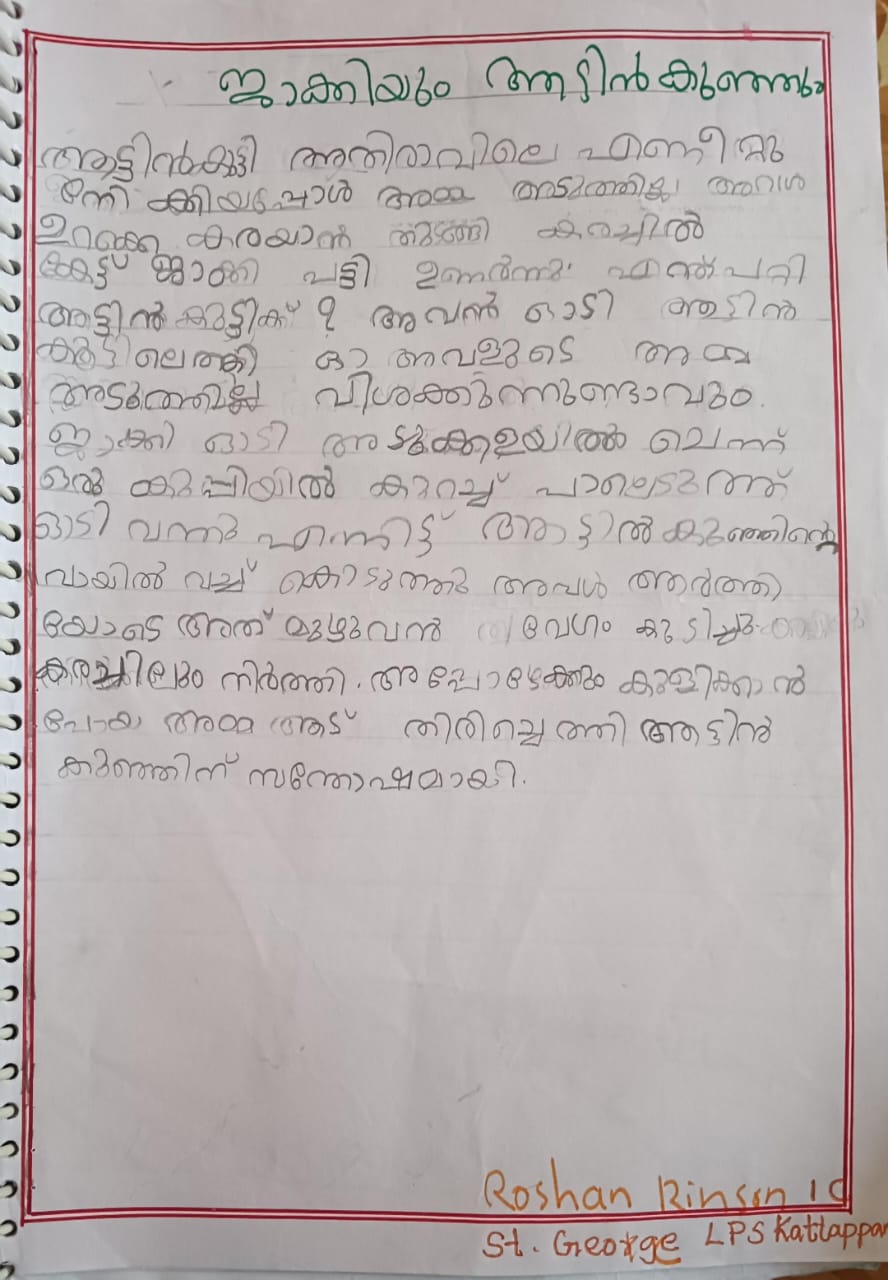 ജാക്കിയും ആട്ടിൻകുഞ്ഞും
ആട്ടിൻകുട്ടി അതിരാവിലെ എണീറ്റു
നോക്കിയപ്പോൾ അമ്മ അടുത്തില്ല അവൾ
ഉറക്കെ കരയാൻ തുടങ്ങി കരച്ചിൽ
കേട്ട് ജാക്കി പട്ടി ഉണർന്നു. എന്ത് പറ്റി
ആട്ടിൻകുട്ടിക് ? അവൻ ഓടി ആട്ടിൻ
കൂട്ടിലെത്തി ഓ അവളുടെ അമ്മ
അടുത്തില്ല വിശക്കുന്നുണ്ടാവും.
ജാക്കി ഓടി അടുക്കളയിൽ ചെന്ന്
ഒരു കുപ്പിയിൽ കുറച്ച് പാലെടുത്ത്
ഓടി വന്നു എന്നിട്ട് ആട്ടിൽകുഞ്ഞിന്റെ
വായിൽ വച്ച് കൊടുത്തു അവൾ ആർത്തി
യോടെ അത് മുഴുവൻ വേഗം കുടിച്ചു
കരച്ചിലും നിർത്തി. അപ്പോഴേക്കും കുളിക്കാൻ
പോയ അമ്മ ആട് തിരിച്ചെത്തി ആട്ടിൻ
കുഞ്ഞിന് സന്തോഷമായി.
Roshan Rinson 1 C
St. George LPS Kattappan